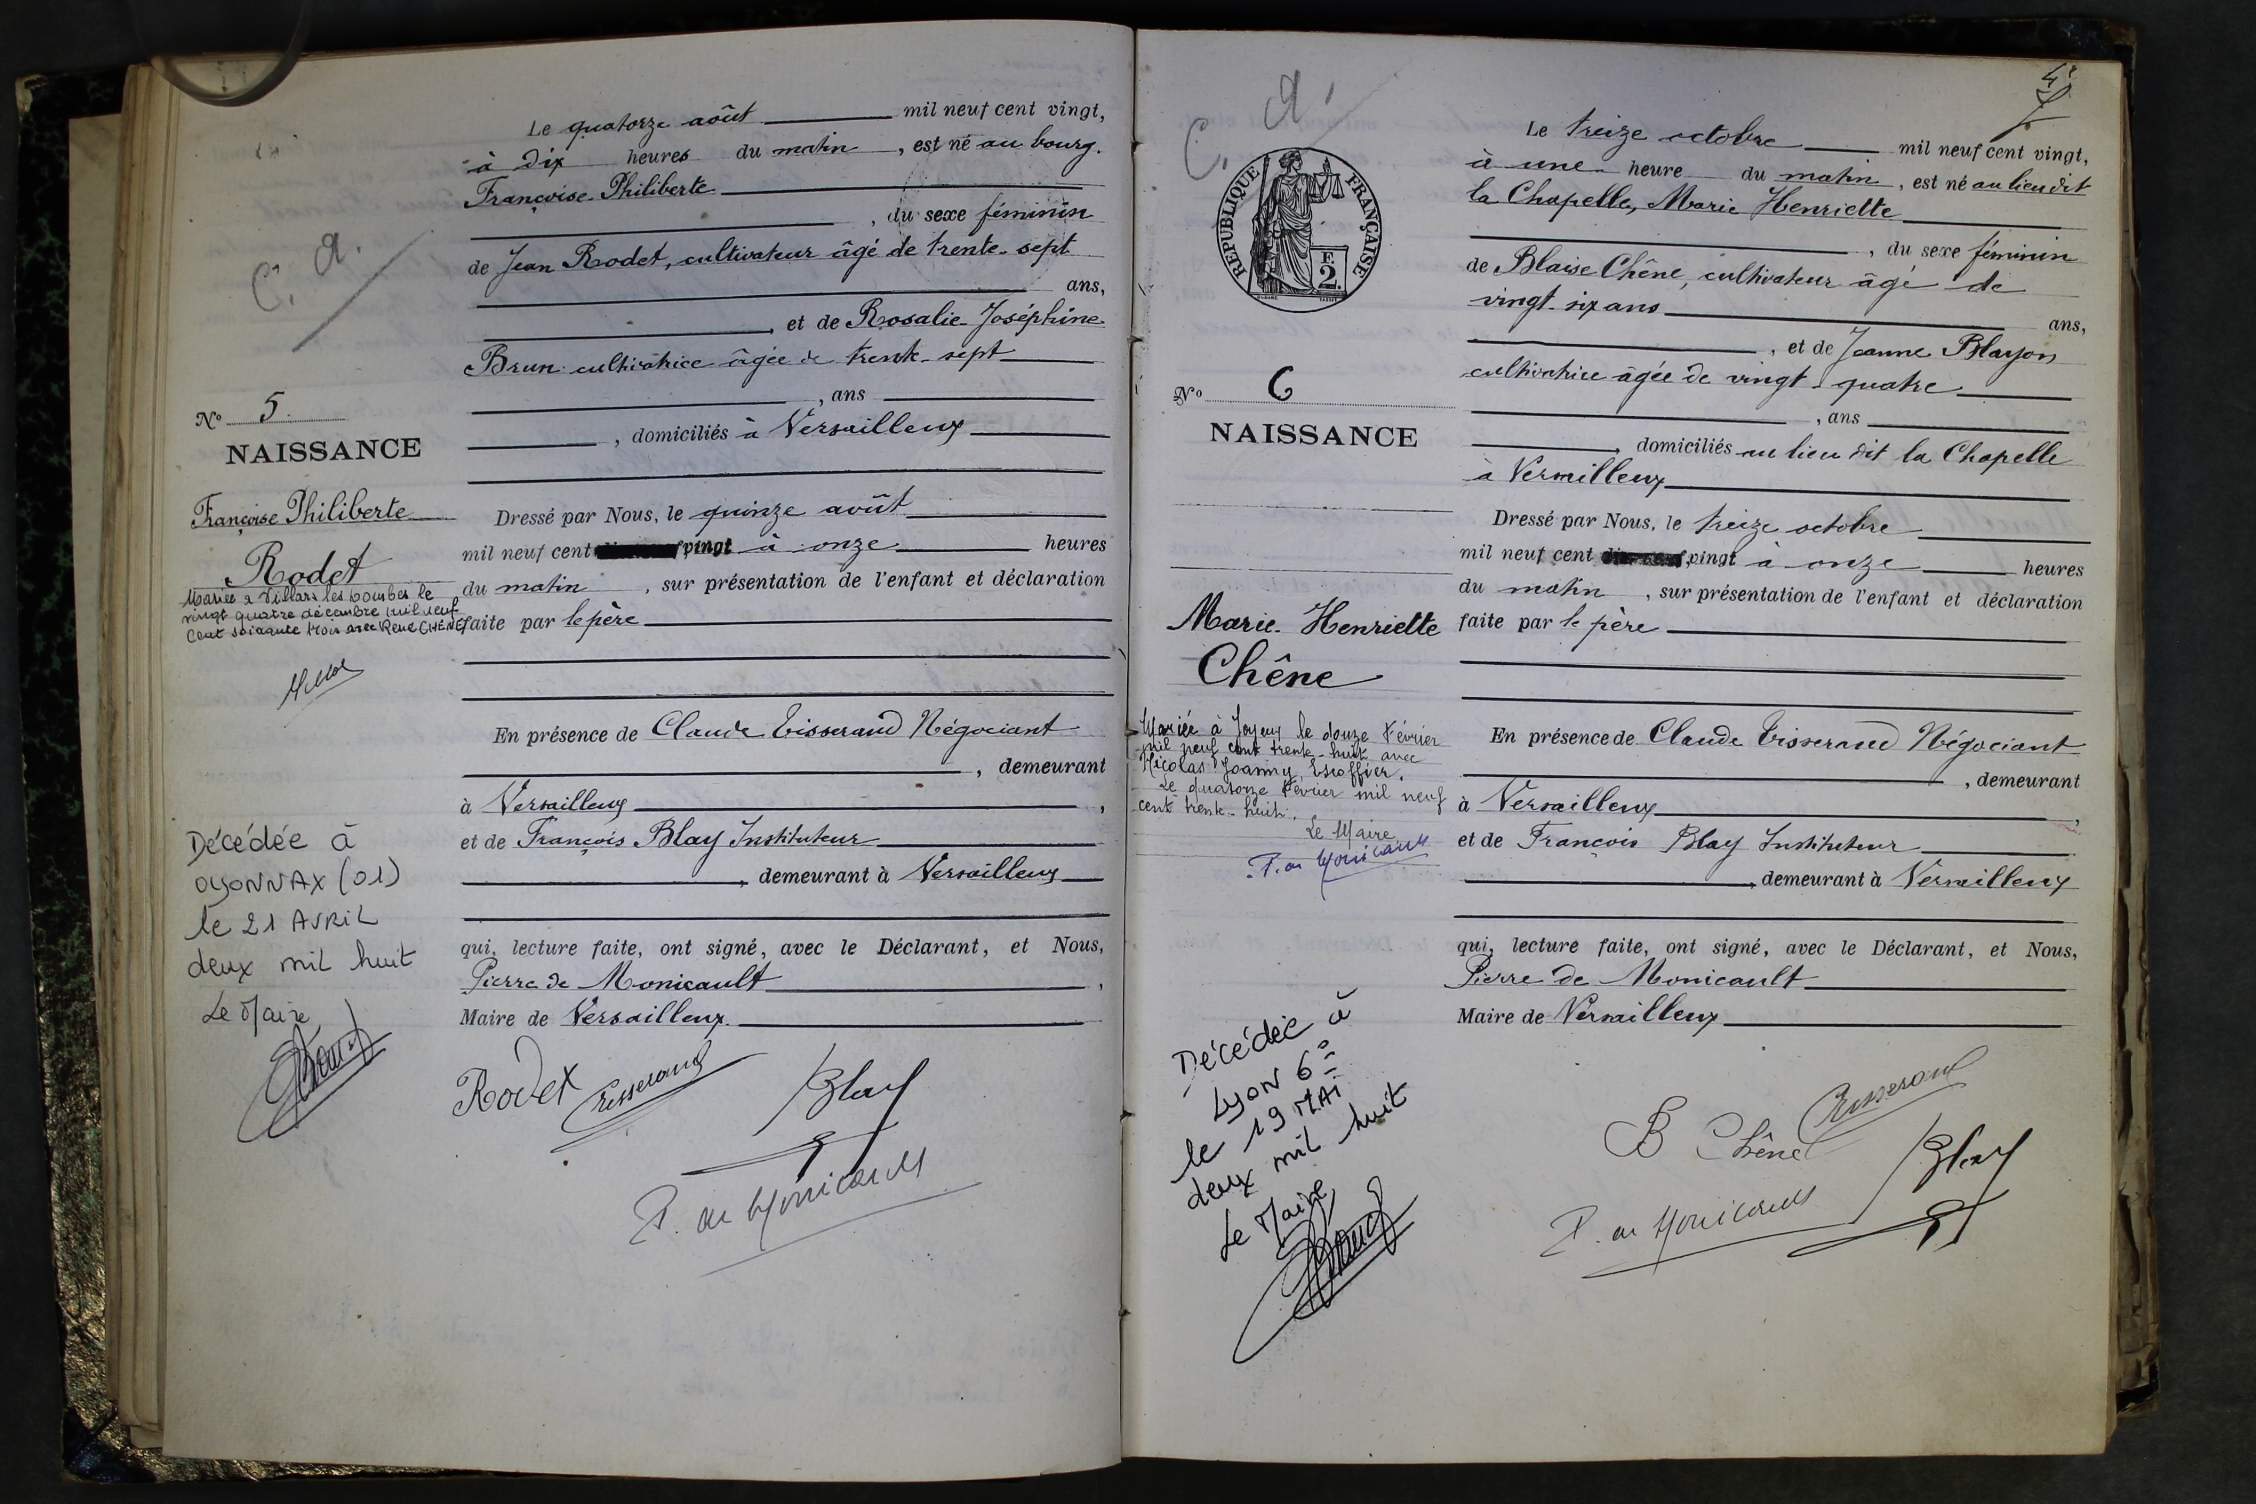 C. A.
N° 5.
NAISSANCE
Françoise Philiberte
Rodet
Mariée à Villars les Dombes le
vingt quatre décembre mil neuf
cent soixante trois avec René CHÊNE
Décédée à
OYONNAX (01)
le 21 AVRIL
deux mil huit
Le Maire
Le quatorze août mil neuf cent vingt,
à dix heures du matin, est né au bourg.
Françoise Philiberte
, du sexe féminin
de Jean Rodet, cultivateur âgé de trente-sept
ans,
, et de Rosalie-Joséphine
Brun cultivatrice âgée de trente-sept
, ans
, domiciliés à Versailleux
Dressé par Nous, le quinze août
mil neuf cent vingt à onze heures
du matin, sur présentation de l'enfant et déclaration
faite par le père
En présence de Claude Tisserand Négociant
, demeurant
à Versailleux,
et de François Blay Instituteur
, demeurant à Versailleux
qui, lecture faite, ont signé, avec le Déclarant, et Nous,
Pierre de Monicault,
Maire de Versailleux.
Rodet Tisserand Blay
P. de Monicault
C. A.
RÉPUBLIQUE FRANÇAISE
F.
2.
N° 6
NAISSANCE
Marie-Henriette
Chêne
Mariée à Joyeux le douze Février
mil neuf cent trente-huit avec
Nicolas Joanny Escoffier.
Le quatorze Février mil neuf
cent trente-huit.
Le Maire
P. de Monicault
Décédée à
Lyon 6°
le 19 MAI
deux mil huit
Le Maire
4
Le treize octobre mil neuf cent vingt,
à une heure du matin, est né au lieu dit
la Chapelle, Marie Henriette
, du sexe féminin
de Blaise Chêne, cultivateur âgé de
vingt-six ans ans,
, et de Jeanne Blayon
cultivatrice âgée de vingt-quatre
, ans
, domiciliés au lieu dit la Chapelle
à Versailleux
Dressé par Nous, le treize octobre
mil neuf cent vingt à onze heures
du matin, sur présentation de l'enfant et déclaration
faite par le père
En présence de Claude Tisserand Négociant
, demeurant
à Versailleux,
et de François Blay Instituteur
, demeurant à Versailleux
qui, lecture faite, ont signé, avec le Déclarant, et Nous,
Pierre de Monicault
Maire de Versailleux
B Chêne Tisserand
Blay
P. de Monicault